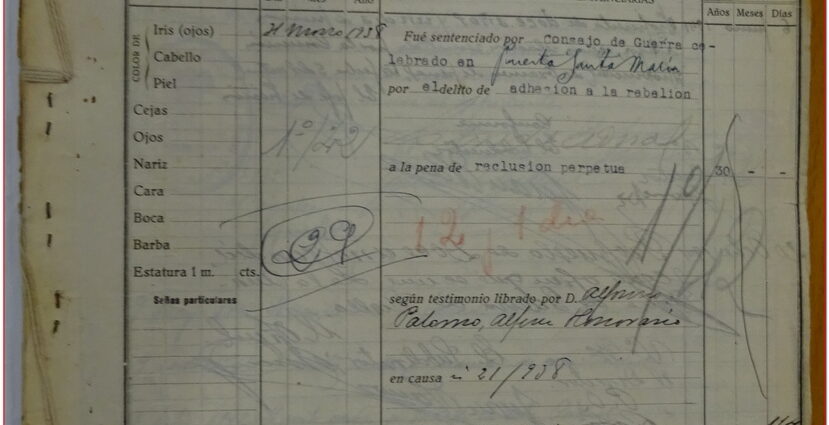 Años Meses Días
COLOR DE
Iris (ojos)
Cabello
Piel
Cejas
Ojos
Nariz
Cara
Boca
Barba
Estatura 1 m. cts.
Señas particulares
1938
29
Fué sentenciado por Consejo de Guerra ce-
lebrado en Puerto Santa María
por el delito de adhesion a la rebelion
a la pena de reclusion perpetua 30 - -
12 1 dia
según testimonio librado por D. Alfonso
Palomo, Alferez Honorario
en causa 21/938